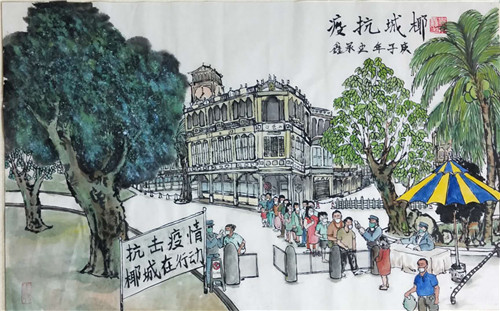 椰城抗疫
庚子年
抗击疫情
椰城在行动